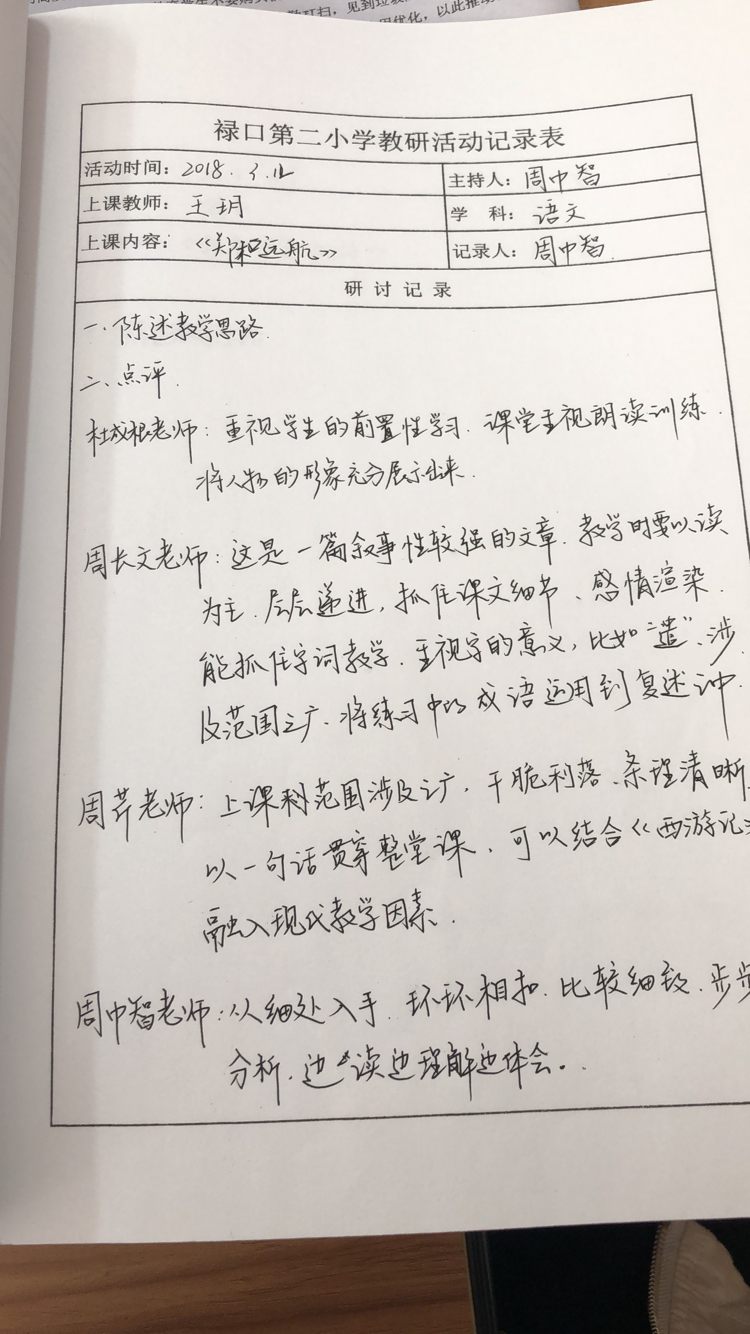 见到垃圾
优化，以此推动
禄口第二小学教研活动记录表
活动时间：2018.3.12
主持人：周中智
上课教师：王玥
学 科：语文
上课内容：《郑和远航》
记录人：周中智
研讨记录
一、陈述教学思路.
二、点评.
杜成根老师：重视学生的前置性学习.课堂重视朗读训练.
将人物的形象充分展示出来.
周长文老师：这是一篇叙事性较强的文章.教学时要以读
为主.层层递进，抓住课文细节、感情渲染.
能抓住字词教学.重视字的意义，比如“遣”、涉
及范围之广、将练习中的成语运用到复述中.
周芹老师：上课科范围涉及之广，干脆利落、条理清晰.
以一句话贯穿整堂课，可以结合《西游记》
融入现代教学因素.
周中智老师：从细处入手.环环相扣.比较细致.步步
分析.边读边理解边体会。.